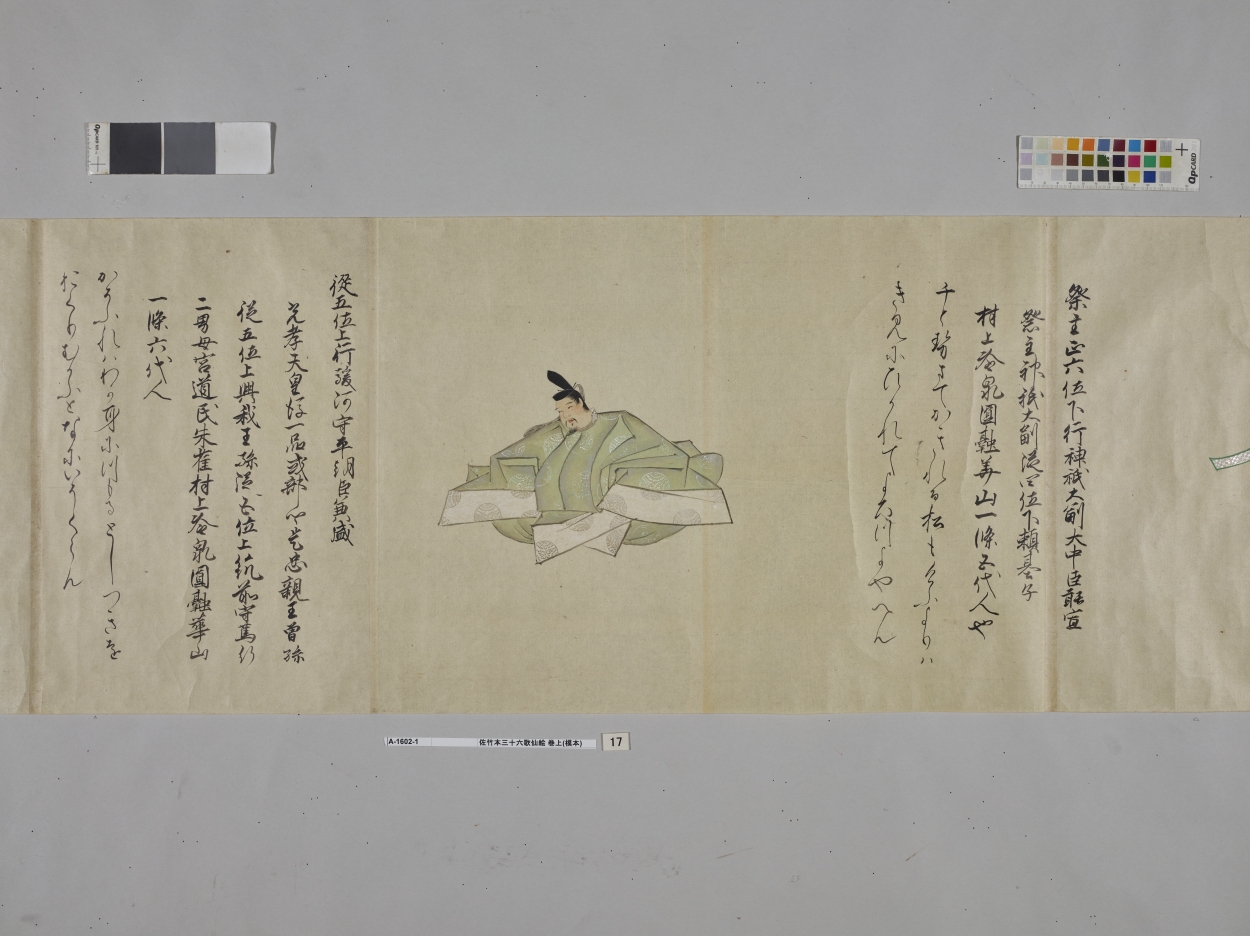 祭主正六位下行神祇大副大中臣能宣
祭主神祇大副従四位下頼基子
村上冷泉圓融華山一條五代人也
千とせまてかきれる松もけふよりハ
きみにひかれてよろつよやへん
従五位上行駿河守平朝臣兼盛
光孝天皇後一品式部卿是忠親王曾孫
従五位上興我王孫従五位上筑前守篤行
二男母宮道氏朱雀村上冷泉圓融華山
一條六代人
かそふれハわか身につもるとしつきを
おくりむかふとなにいそくらん
A-1602-1 佐竹本三十六歌仙絵 巻上(模本) 17
QPCARD